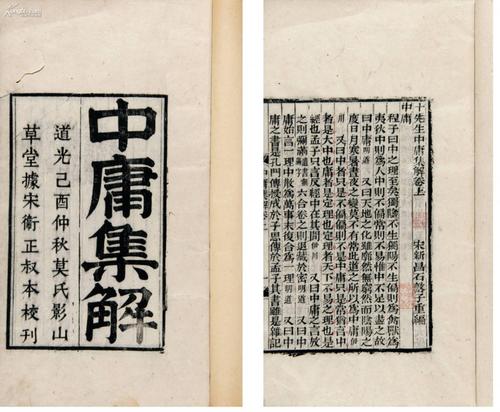 中庸集解
道光己酉仲秋莫氏影山
草堂據宋衞正叔本校刊
十先生中庸集解卷上
宋新昌石𡼖子重編
中庸
程子曰中之理至矣獨陰不生獨陽不生偏則爲禽獸爲
夷狄中則爲人中則不偏常則不易惟中不足以盡之故
曰中庸明道 又曰天地之化雖廓然無窮然而陰陽之
度日月寒暑晝夜之變莫不有常此道之所以爲中庸
又曰中者只是不偏偏則不是中庸只是常猶言中
者是大中也庸者是定理也定理者天下不易之理也是
經也孟子只言反經中在其間伊川 又曰中庸之言放
之則彌滿六合卷之則退藏於密明道 又曰中
庸始言一理中散爲萬事末復合爲一理明道 又曰中
庸之書是孔門傳授成於子思傳於孟子其書雖是雜記